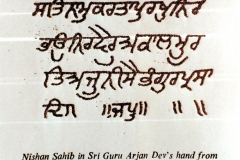 ਸਤਿਨਾਮੁਕਰਤਾਪੁਰਖੁਨਿਰ
ਭਉਨਿਰਵੈਰੁਅਕਾਲਮੂਰ
ਤਿਅਜੂਨੀਸੈਭੰਗੁਰਪ੍ਰਸਾ
ਦਿ॥ ॥ਜਪੁ॥ ॥ ॥
Nishan Sahib in Sri Guru Arjan Dev's hand from